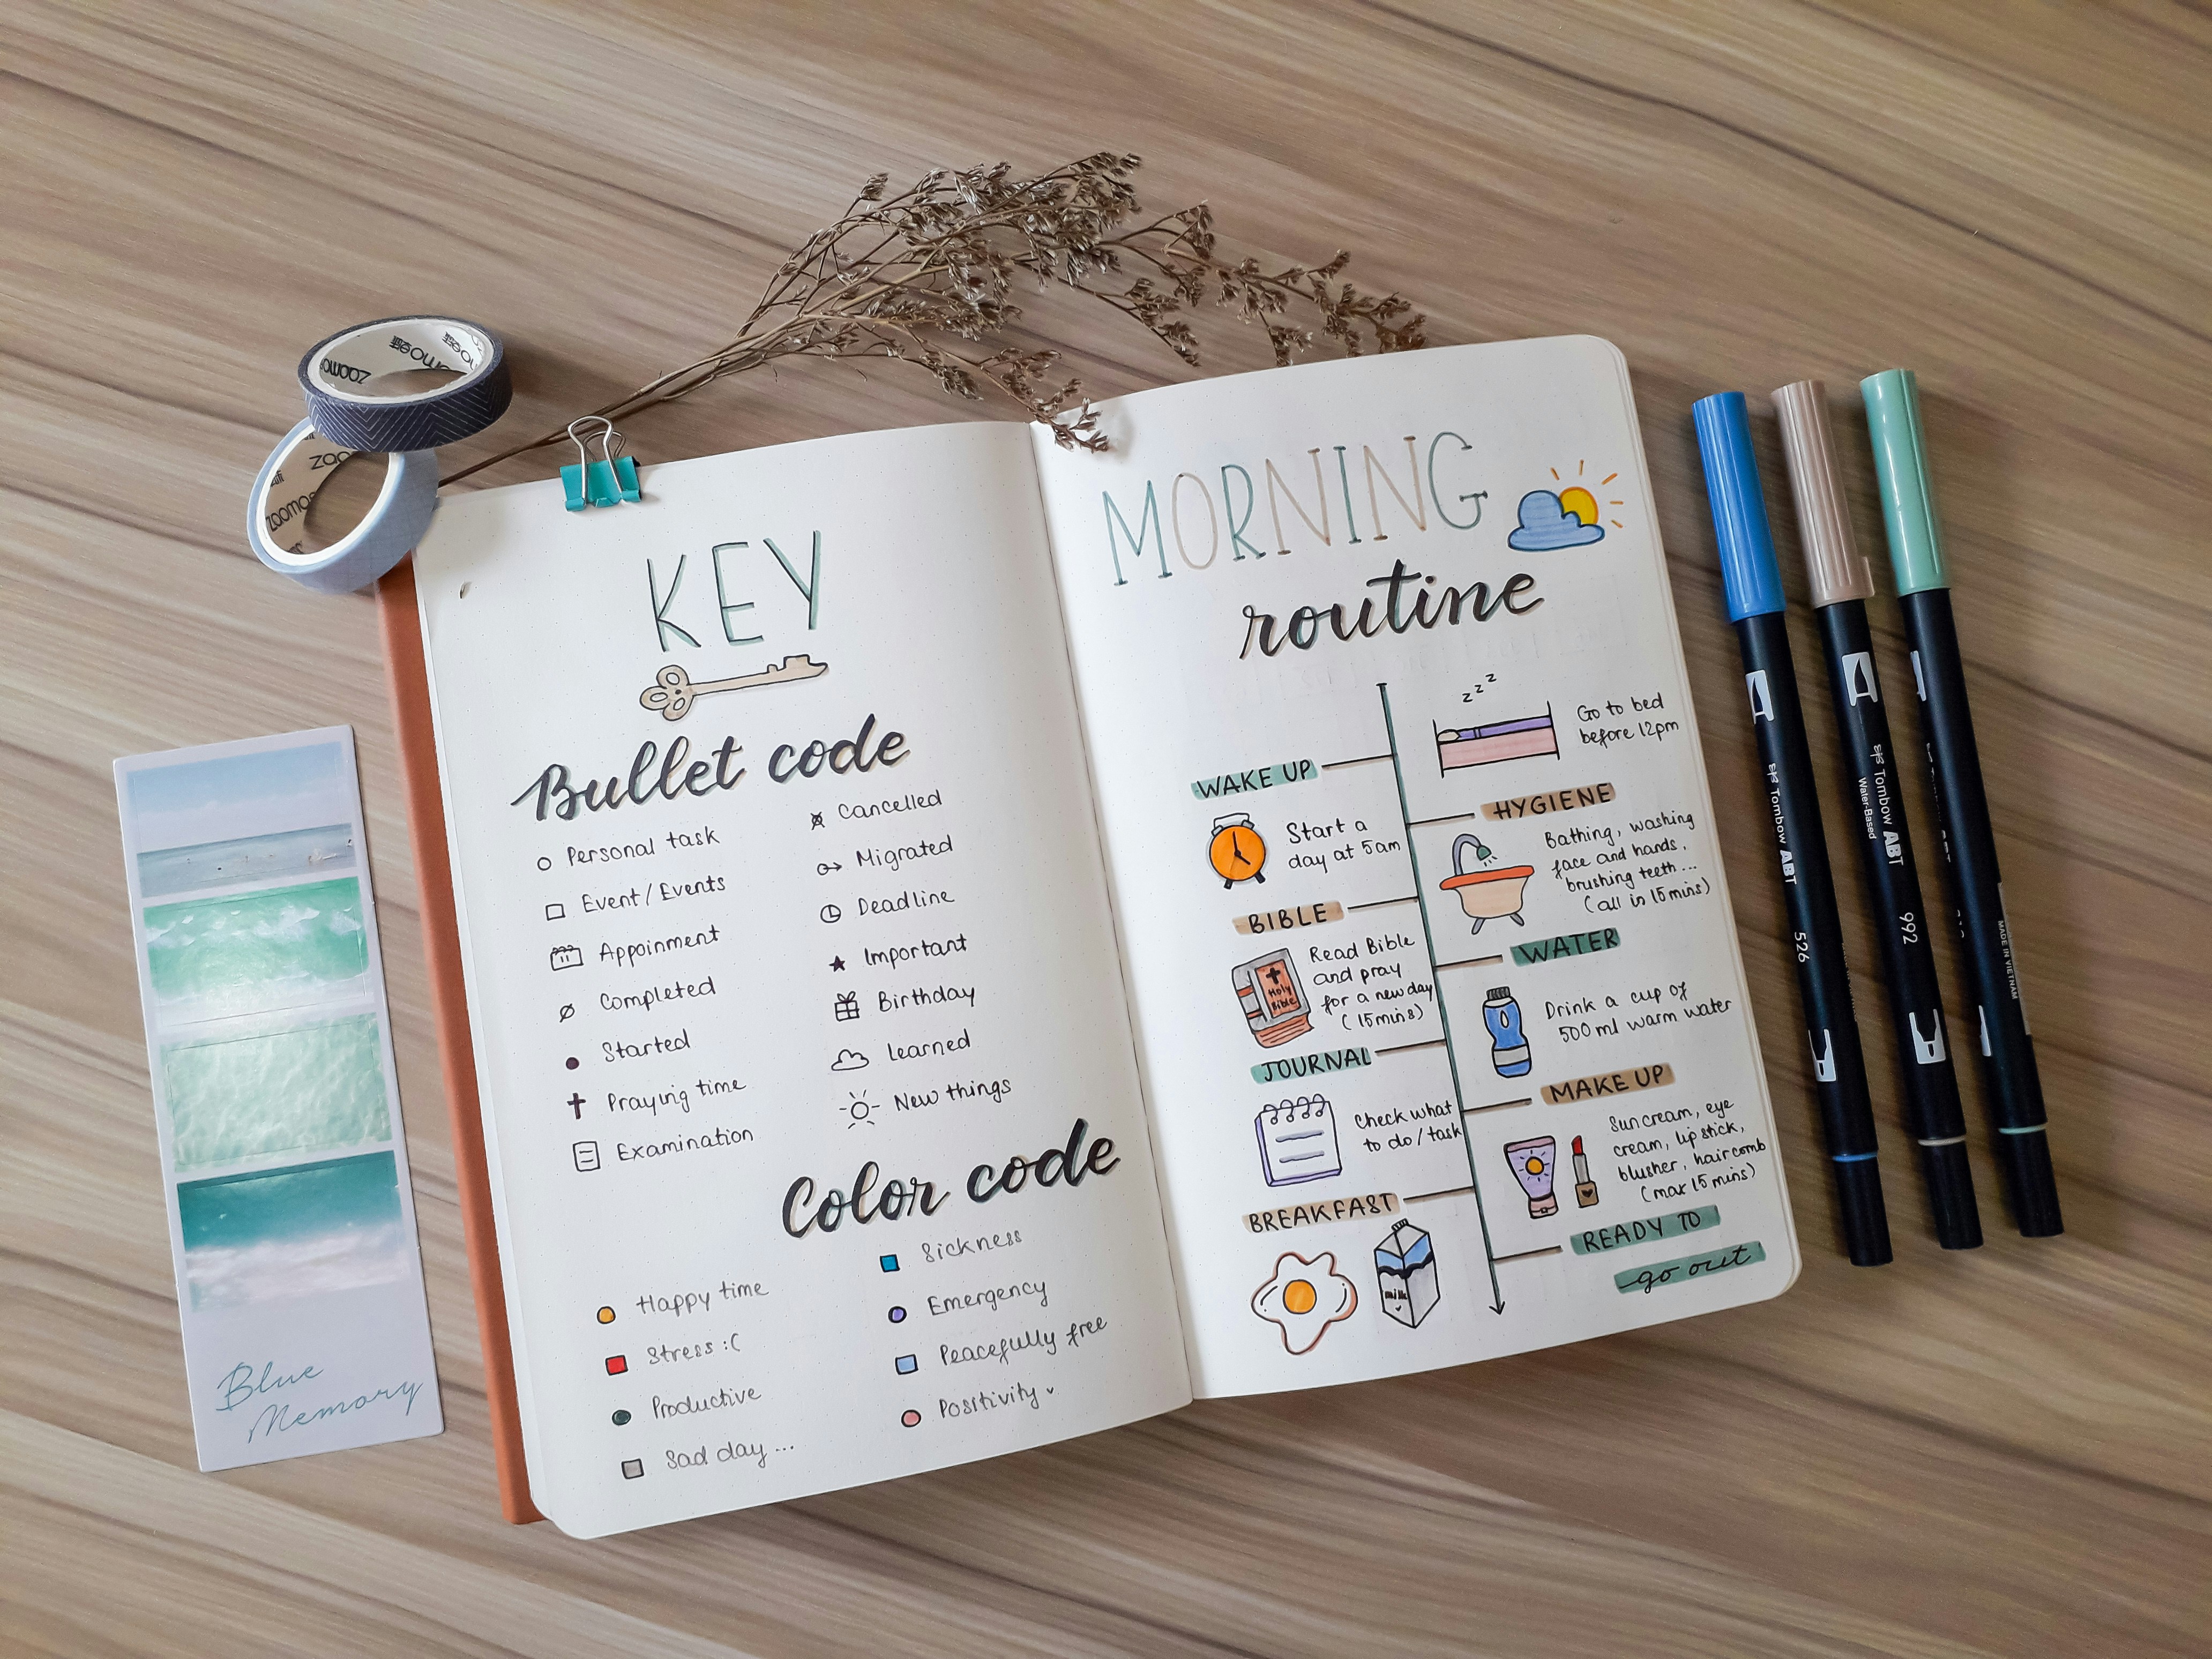 zoomoesti
zoomoesti
KEY
Bullet code
Personal task
Event / Events
Appoinment
Completed
Started
Praying time
Examination
Cancelled
Migrated
Deadline
Important
Birthday
Learned
New things
Color code
Happy time
Stress :(
Productive
Sad day ...
Sickness
Emergency
Peacefully free
Positivity
MORNING
routine
z z z
Go to bed
before 12pm
WAKE UP
Start a
day at 5am
HYGIENE
Bathing, washing
face and hands,
brushing teeth...
(all in 15 mins)
BIBLE
Holy
Bible
Read Bible
and pray
for a new day
(15mins)
WATER
Drink a cup of
500 ml warm water
JOURNAL
Check what
to do / task
MAKE UP
Sun cream, eye
cream, lip stick,
blusher, hair comb
(max 15 mins)
BREAKFAST
milk
READY TO
go out
Blue
Memory
Tombow ABT
526
Tombow ABT
Water-Based
992
MADE IN VIETNAM